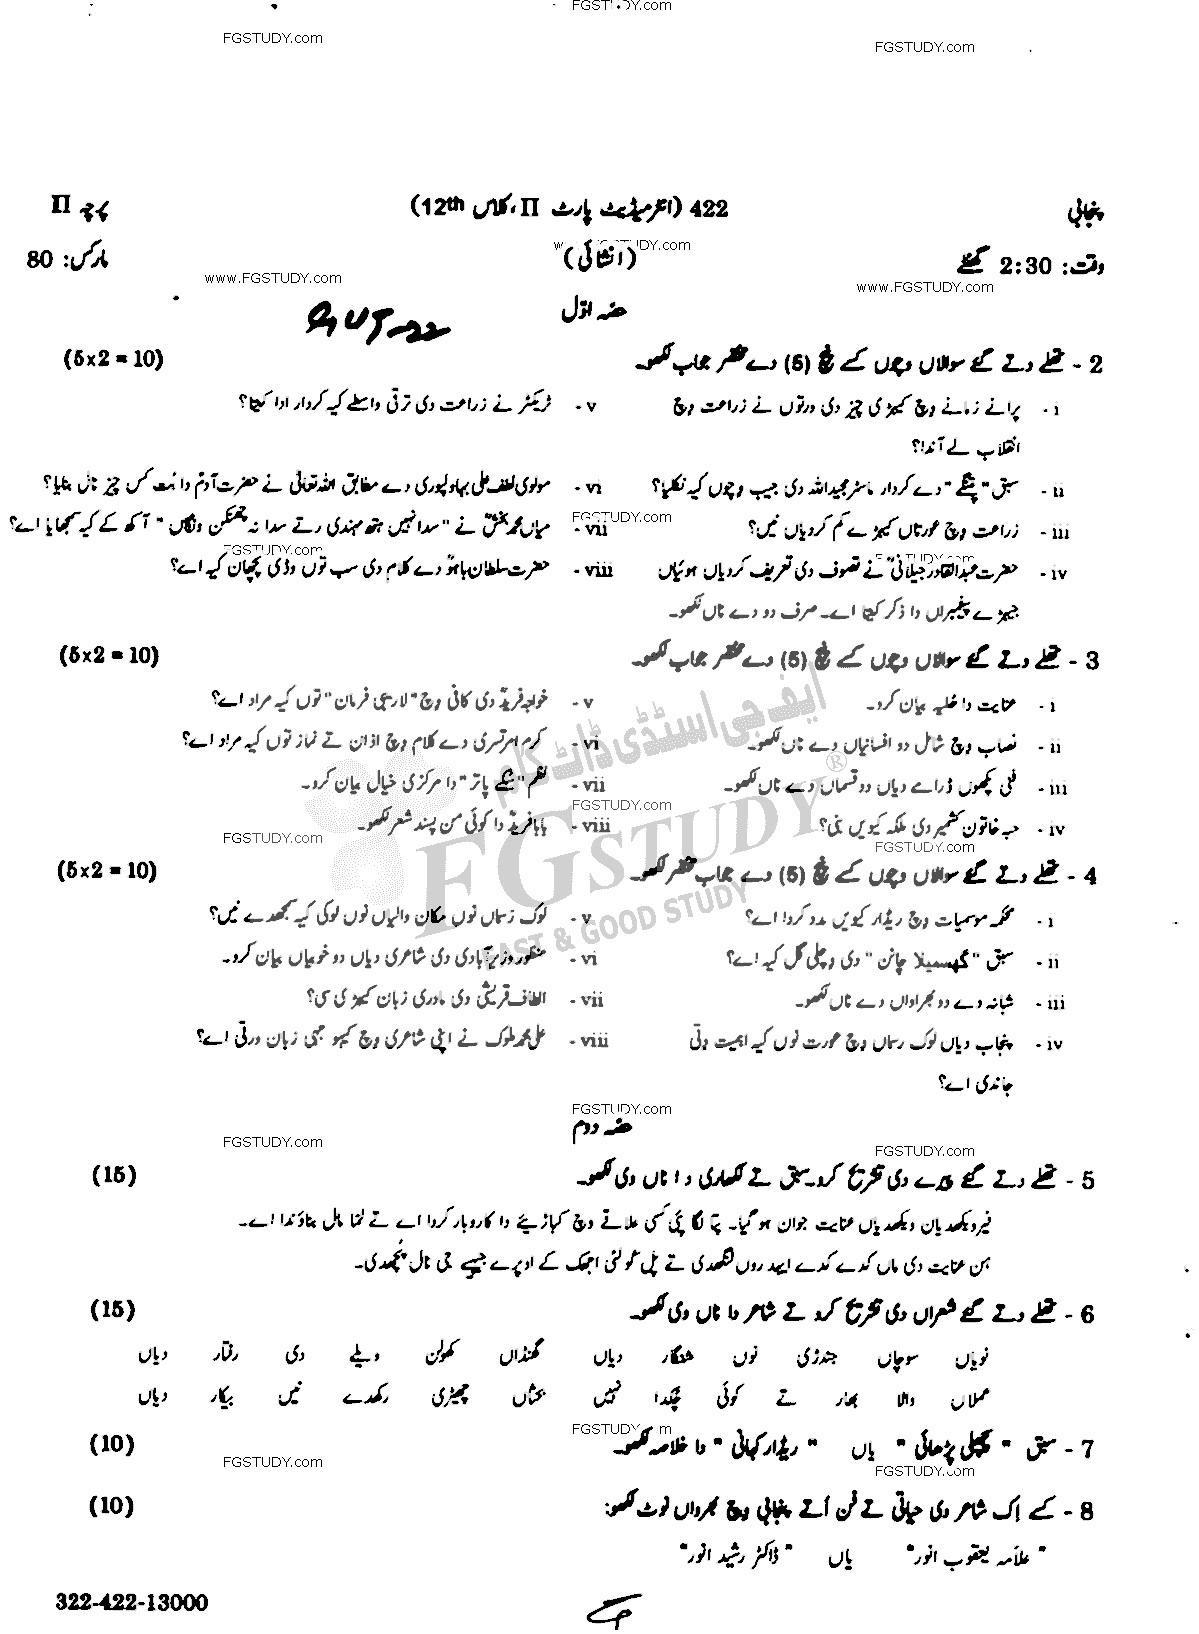 FGSTUDY.com
FGSTUDY.com
FGSTUDY.com
پنجابی 422 (انٹرمیڈیٹ پارٹ II، کلاس 12th) پرچہ II
وقت: 2:30 گھنٹے (انشائی) مارکس: 80
www.FGSTUDY.com
www.FGSTUDY.com
حصہ اوّل
2 - تھلے دتے گئے سوالاں وچوں کے پنج (5) دے مختصر جواب لکھو۔ (5x2 = 10)
i - پرانے زمانے وچ کیہڑی چیز دی ورتوں نے زراعت وچ انقلاب لے آندا؟
v - ٹریکٹر نے زراعت دی ترقی واسطے کیہ کردار ادا کیتا؟
ii - سبق "پنگے" دے کردار ماسٹر مجیداللہ دی جیب وچوں کیہ نکلیا؟
vi - مولوی لطف علی بہاولپوری دے مطابق اللہ تعالیٰ نے حضرت آدمؑ دا بُت کس چیز نال بنایا؟
iii - زراعت وچ عورتاں کیہڑے کم کردیاں نیں؟
vii - میاں محمد بخشؒ نے "سدا نہیں ہتھ مہندی رتے سدا نہ چھنکن ونگاں" آکھ کے کیہ سمجھایا اے؟
iv - حضرت عبدالقادر جیلانیؒ نے تصوف دی تعریف کردیاں ہوئیاں جیہڑے پیغمبراں دا ذکر کیتا اے۔ صرف دو دے ناں لکھو۔
viii - حضرت سلطان باہوؒ دے کلام دی سب توں وڈی پچھان کیہ اے؟
3 - تھلے دتے گئے سوالاں وچوں کے پنج (5) دے مختصر جواب لکھو۔ (5x2 = 10)
i - عنایت دا حُلیہ بیان کرو۔
v - خواجہ فریدؒ دی کافی وچ "لاریبی فرمان" توں کیہ مراد اے؟
ii - نصاب وچ شامل دو افسانیاں دے ناں لکھو۔
vi - کرم امرتسری دے کلام وچ اذان تے نماز توں کیہ مراد اے؟
iii - فنی پکھوں ڈرامے دیاں دو قسماں دے ناں لکھو۔
vii - نظم "سکے پاتر" دا مرکزی خیال بیان کرو۔
iv - حبہ خاتون کشمیر دی ملکہ کیویں بنی؟
viii - بابا فریدؒ دا کوئی من پسند شعر لکھو۔
4 - تھلے دتے گئے سوالاں وچوں کے پنج (5) دے جواب مختصر لکھو۔ (5x2 = 10)
i - محکمہ موسمیات وچ ریڈار کیویں مدد کردا اے؟
v - لوک رسماں نوں مکان والیاں نوں لوکی کیہ سمجھدے نیں؟
ii - سبق "گھسمیلا چانن" دی وچلی گل کیہ اے؟
vi - منظور وزیر آبادی دی شاعری دیاں دو خوبیاں بیان کرو۔
iii - شبانہ دے دو بھراواں دے ناں لکھو۔
vii - الطاف قریشی دی مادری زبان کیہڑی سی؟
iv - پنجاب دیاں لوک رسماں وچ عورت نوں کیہ اہمیت دتی جاندی اے؟
viii - علی محمد ملوک نے اپنی شاعری وچ کیہو جہی زبان ورتی اے؟
حصہ دوم
5 - تھلے دتے گئے پیرے دی تشریح کرو۔ سبق تے لکھاری دا ناں وی لکھو۔ (15)
فیر ویکھدیاں ویکھدیاں عنایت جوان ہو گیا۔ پتا لگا پئی کسی علاقے وچ کباڑیئے دا کاروبار کردا اے تے لما مال بناؤندا اے۔
ہن عنایت دی ماں کدے کدے ایہد روں لنگھدی تے پل گوئی اٹک کے اوپرے جیہے جی نال پچھدی۔
6 - تھلے دتے گئے شعراں دی تشریح کرو تے شاعر دا ناں وی لکھو۔ (15)
نویاں سوچاں جندڑی نوں شنگار دیاں گنڈاں کھولن ویلے دی رفتار دیاں
عملاں والا بھار تے کوئی چکدا نہیں بحثاں چھیڑی رکھدے نیں بیکار دیاں
7 - سبق "پچھلی پڑھائی" یاں "ریڈار کہانی" دا خلاصہ لکھو۔ (10)
8 - کسے اِک شاعر دی حیاتی تے فن اُتے پنجابی وچ بھرواں نوٹ لکھو: (10)
"علامہ یعقوب انور" یاں "ڈاکٹر رشید انور"
322-422-13000
ایف جی اسٹڈی ڈاٹ کام
FGSTUDY®
FAST & GOOD STUDY